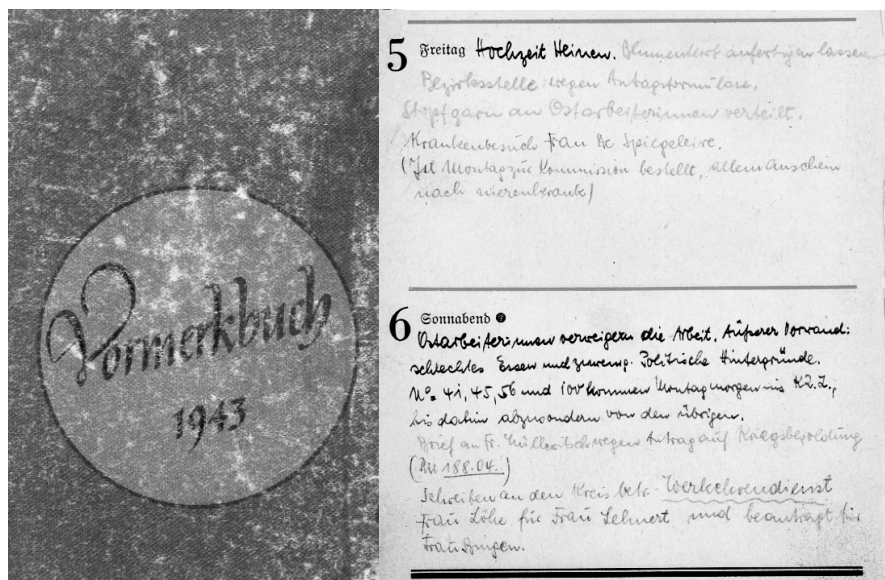 Vormerkbuch
1943
5 Freitag Hochzeit Heinen. Blumenkorb anfertigen lassen
Bezirksstelle wegen Antragsformulare.
Stopfgarn an Ostarbeiterinnen verteilt.
Krankenbesuch Frau De Spiegeleire.
(Ist Montag zur Kommission bestellt, allem Anschein
nach nierenkrank)
6 Sonnabend
Ostarbeiterinnen verweigern die Arbeit. Äußerer Vorwand:
schlechtes Essen und zu wenig. Politische Hintergründe.
No. 41, 45, 56 und 100 kommen Montagmorgen ins KZ.L.,
bis dahin abzusondern von den übrigen.
Brief an Fr. wegen Antrag auf Kriegsbesoldung
188.04.)
Schreiben an den Kreis betr. Werkehrendienst
Frau Löhe für Frau Lehnert und beantragt für
Frau